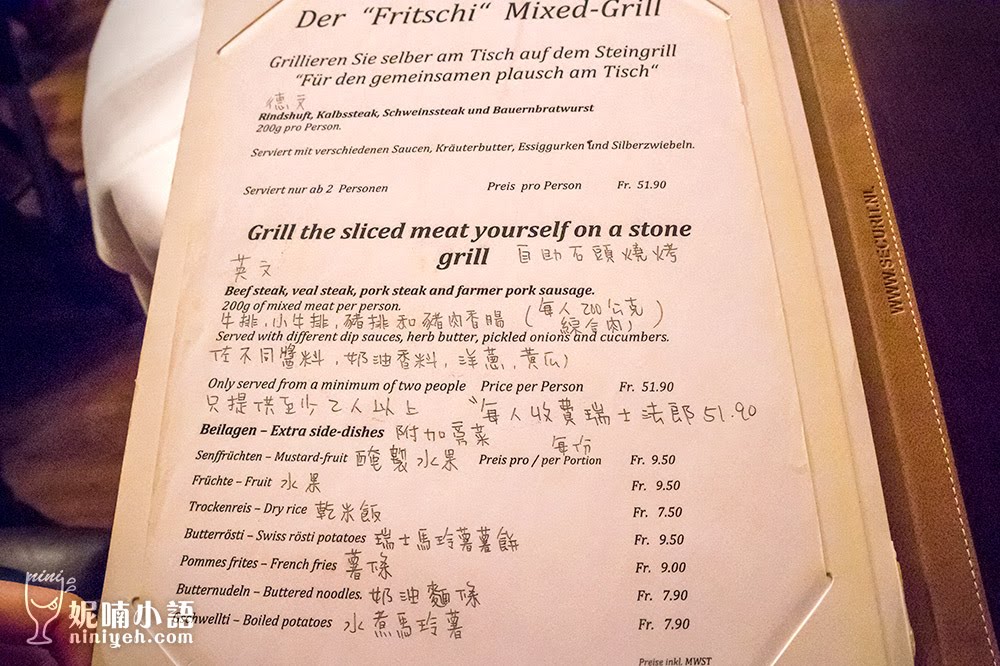 Der "Fritschi" Mixed-Grill
Grillieren Sie selber am Tisch auf dem Steingrill
"Für den gemeinsamen plausch am Tisch"
德文
Rindshuft, Kalbssteak, Schweinssteak und Bauernbratwurst
200g pro Person.
Serviert mit verschiedenen Saucen, Kräuterbutter, Essiggurken und Silberzwiebeln.
Serviert nur ab 2 Personen Preis pro Person Fr. 51.90
Grill the sliced meat yourself on a stone
grill 自助石頭燒烤
英文
Beef steak, veal steak, pork steak and farmer pork sausage.
200g of mixed meat per person. (每人200公克
牛排,小牛排,豬排和豬肉香腸 綜合肉)
Served with different dip sauces, herb butter, pickled onions and cucumbers.
佐不同醬料,奶油香料,洋蔥,黃瓜)
Only served from a minimum of two people Price per Person Fr. 51.90
只提供至少2人以上 每人收費瑞士法郎51.90
Beilagen – Extra side-dishes 附加 菜 每份
Senffrüchten – Mustard-fruit 醃製水果 Preis pro / per Portion Fr. 9.50
Früchte – Fruit 水果 Fr. 9.50
Trockenreis – Dry rice 乾米飯 Fr. 7.50
Butterrösti – Swiss rösti potatoes 瑞士馬玲薯薯餅 Fr. 9.50
Pommes frites – French fries 薯條 Fr. 9.00
Butternudeln – Buttered noodles. 奶油麵條 Fr. 7.90
Gschwellti – Boiled potatoes 水煮馬玲薯 Fr. 7.90
Preise inkl. MWST
WWW.SECURIT.NL
nini
妮喃小語
niniyeh.com